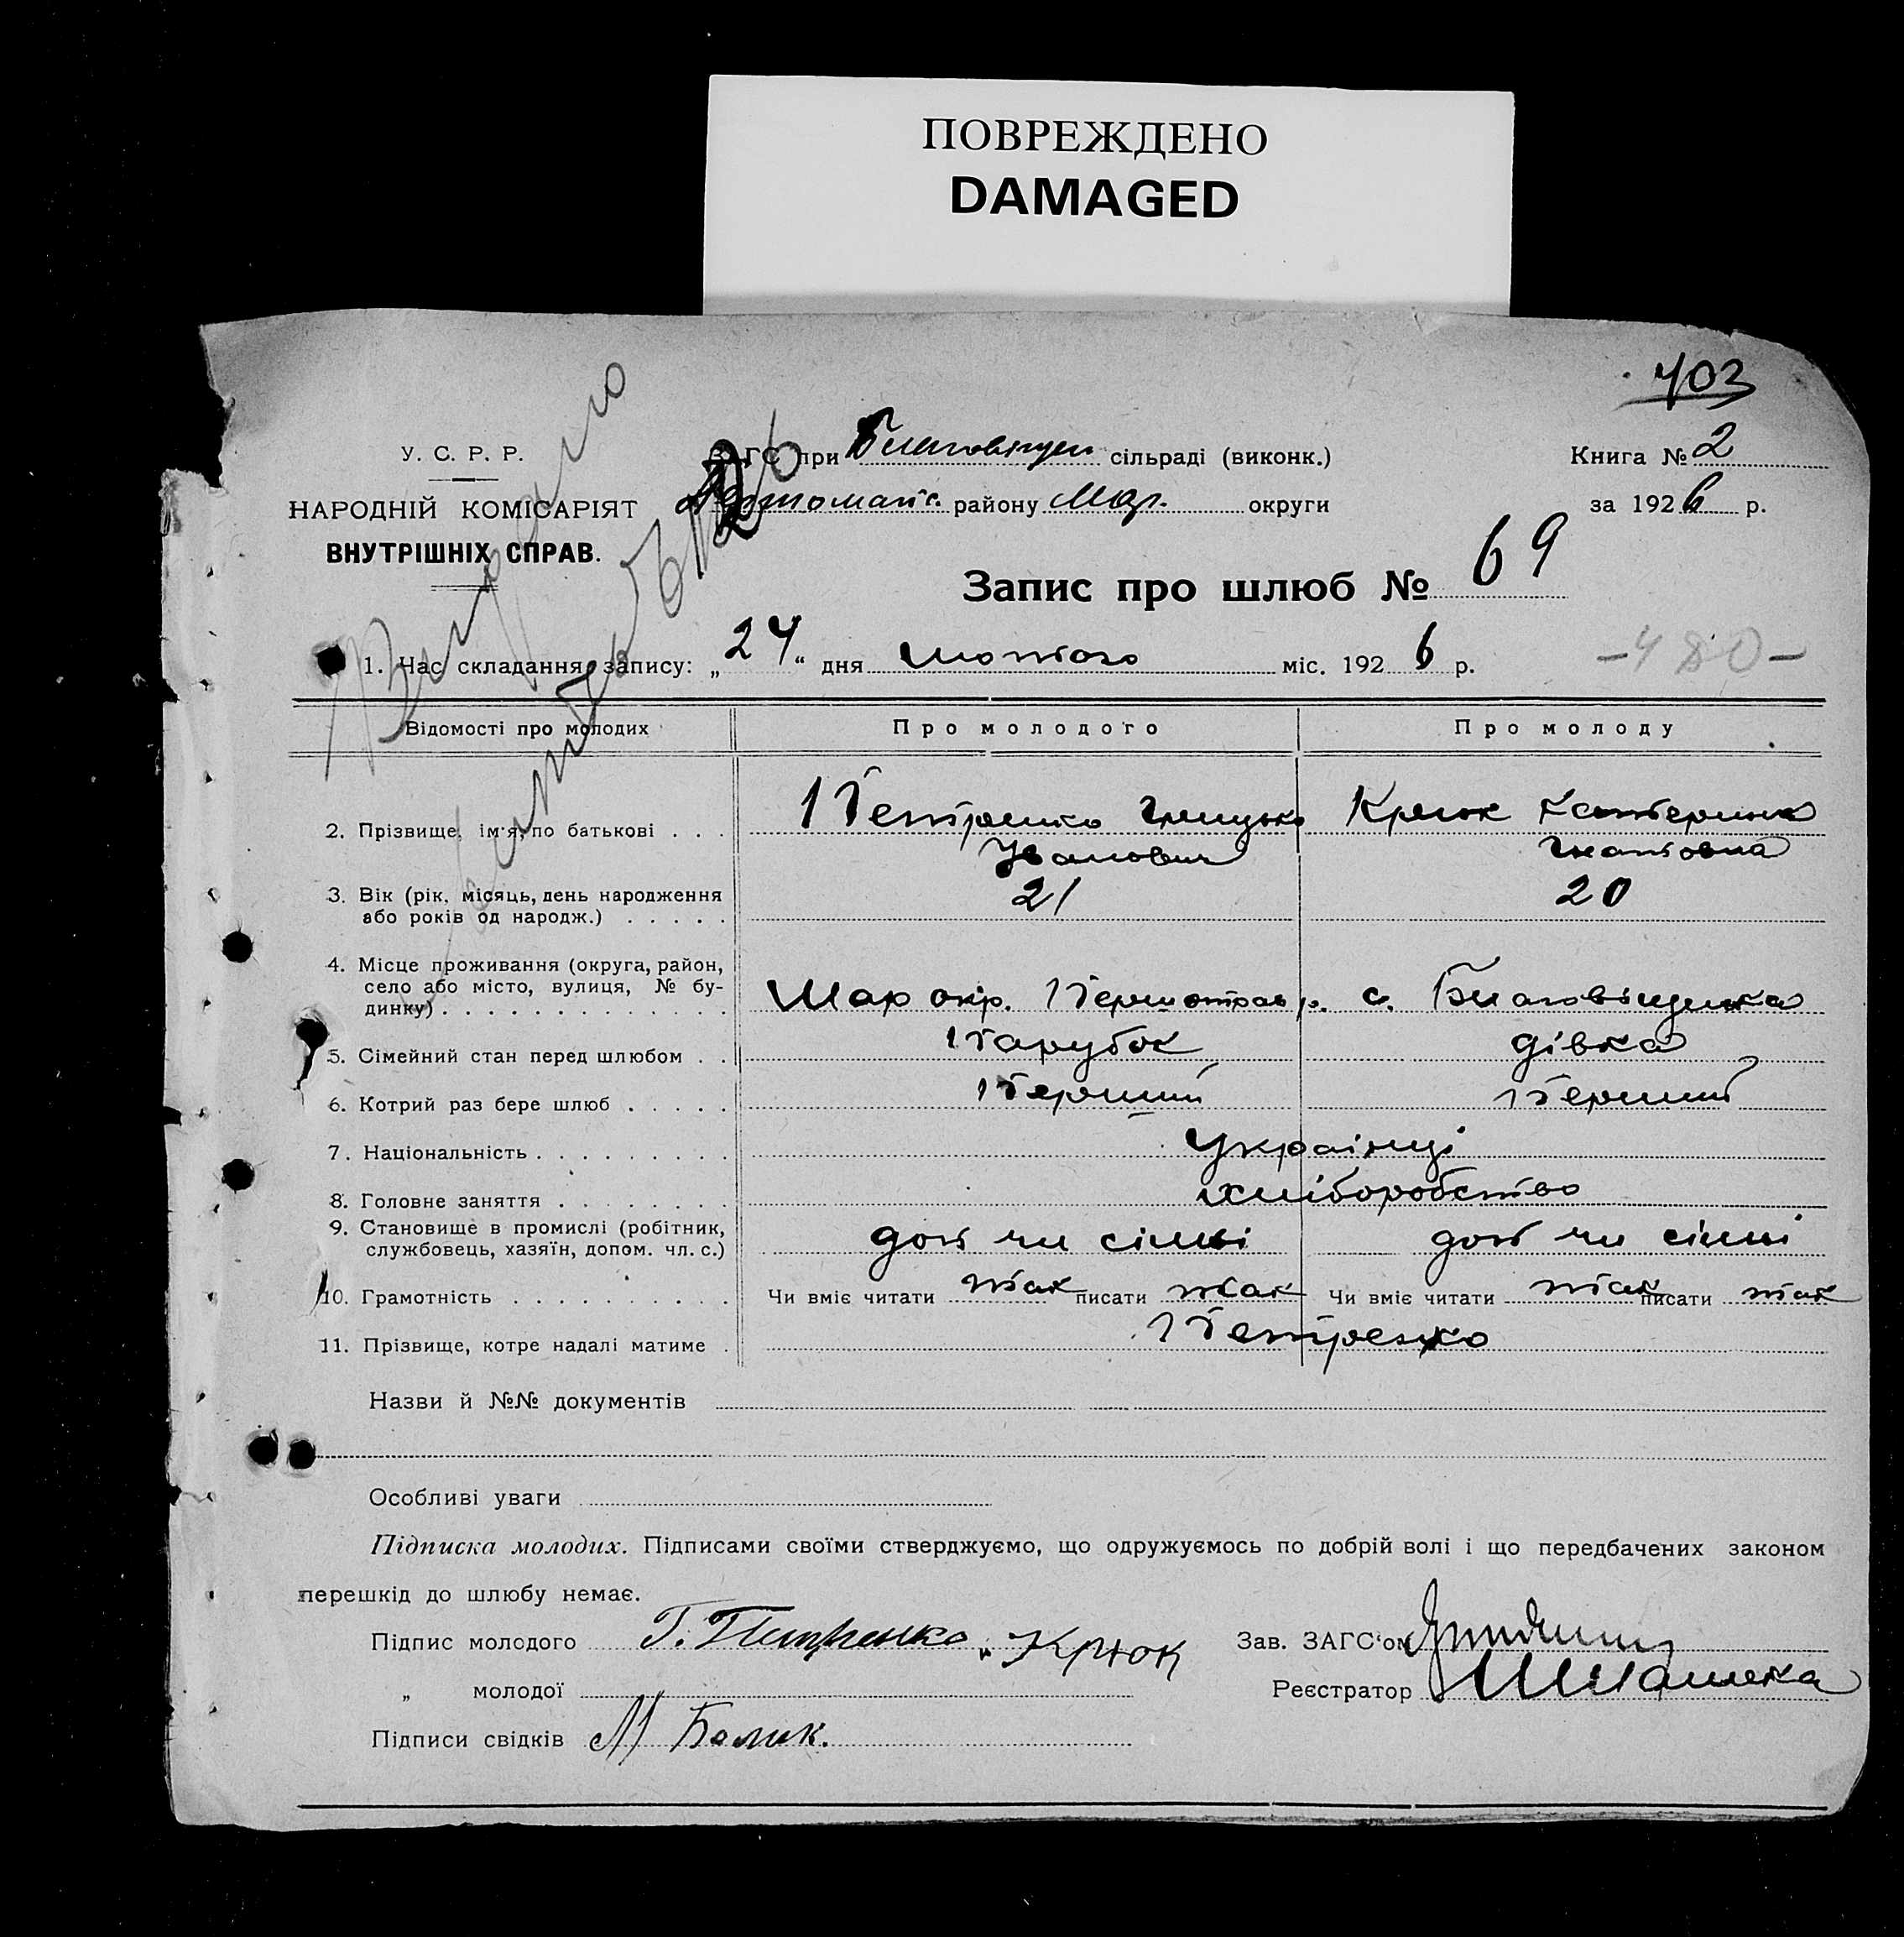 ПОВРЕЖДЕНО
DAMAGED
403
У. С. Р. Р.
НАРОДНІЙ КОМІСАРІЯТ
ВНУТРІШНІХ СПРАВ.
ГС при Благовіщен сільраді (виконк.)
району Мар. округи
Книга № 2
за 1926 р.
Запис про шлюб № 69
1. Час складання запису: „24“ дня лютого міс. 1926 р.
-480-
Відомості про молодих Про молодого Про молоду
2. Прізвище, ім'я, по батькові . . . Петренко Грицько Крюк Катерина
Іванович Гнатовна
3. Вік (рік, місяць, день народження 21 20
або років од народж.) . . . . .
4. Місце проживання (округа, район,
село або місто, вулиця, № бу- Мар окр. р. с. Благовіщенка
динку) . . . . . . . . . . . . .
5. Сімейний стан перед шлюбом . . Парубок дівка
6. Котрий раз бере шлюб . . . . . Перший Перший
7. Національність . . . . . . . . . Українці
8. Головне заняття . . . . . . . . хліборобство
9. Становище в промислі (робітник,
службовець, хазяїн, допом. чл. с.) доп чл сімьі доп чл сімьі
10. Грамотність . . . . . . . . . . Чи вміє читати так писати так Чи вміє читати так писати так
11. Прізвище, котре надалі матиме . Петренко
Назви й №№ документів
Особливі уваги
Підписка молодих. Підписами своїми стверджуємо, що одружуємось по добрій волі і що передбачених законом
перешкід до шлюбу немає.
Підпис молодого Г. Петренко Крюк Зав. ЗАГС'ом
„ молодої Реєстратор
Підписи свідків М Балик.